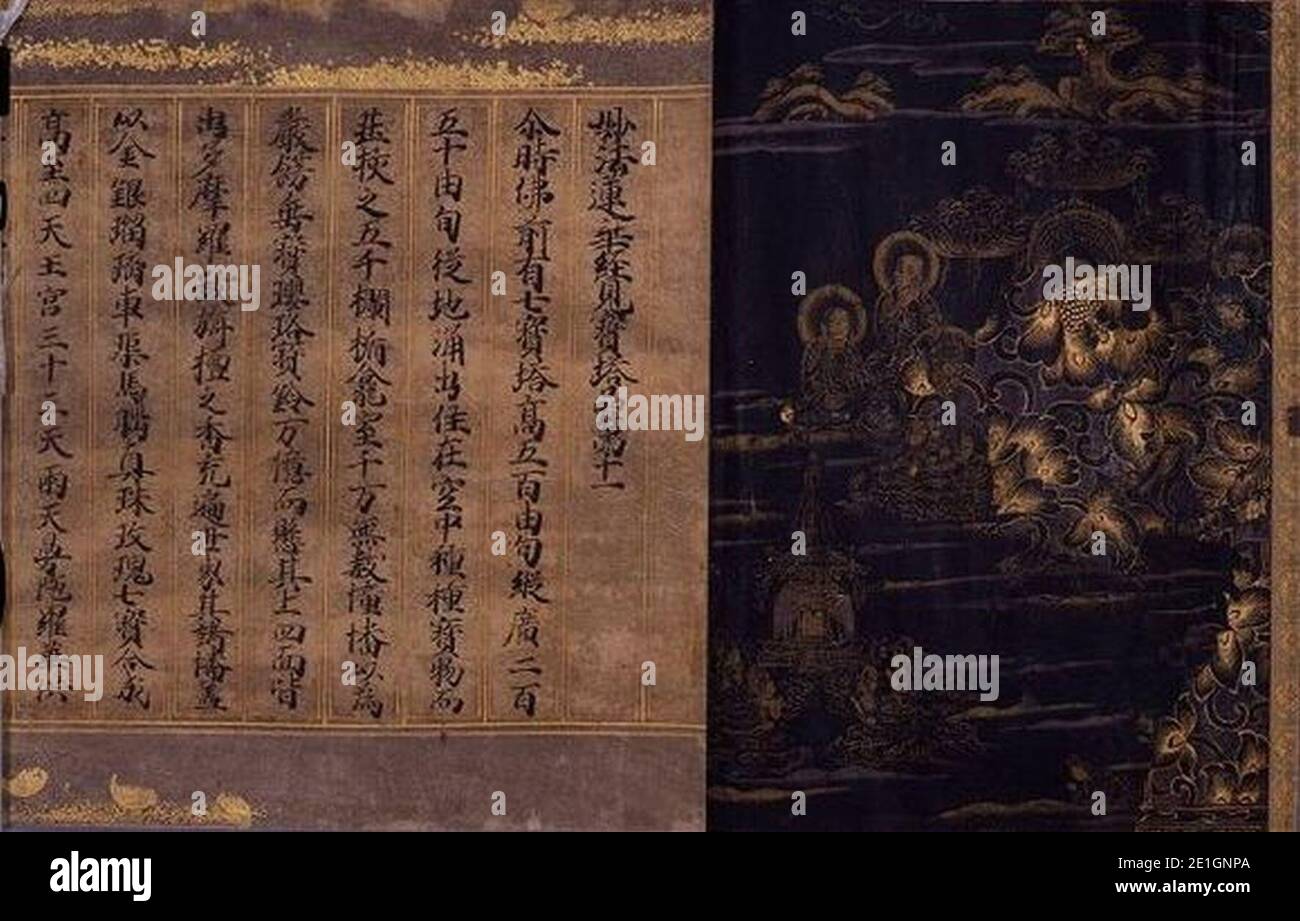 妙法蓮華経見寳塔品第十一
尒時佛前有七寳塔髙五百由旬縦廣二百
五十由旬従地涌出住在空中種種寳物而
荘挍之五千欄楯龕室千万無數幢幡以為
嚴餝垂寳瓔珞寳鈴万憶而懸其上四面皆
出多摩羅跋栴檀之香充遍世界其諸幡盖
以金銀瑠璃車𤦲馬瑙真珠玫瑰七寳合成
髙至四天王宮三十三天雨天曼陀羅華供
alamy
Image ID: 2E1GNPA
www.alamy.com